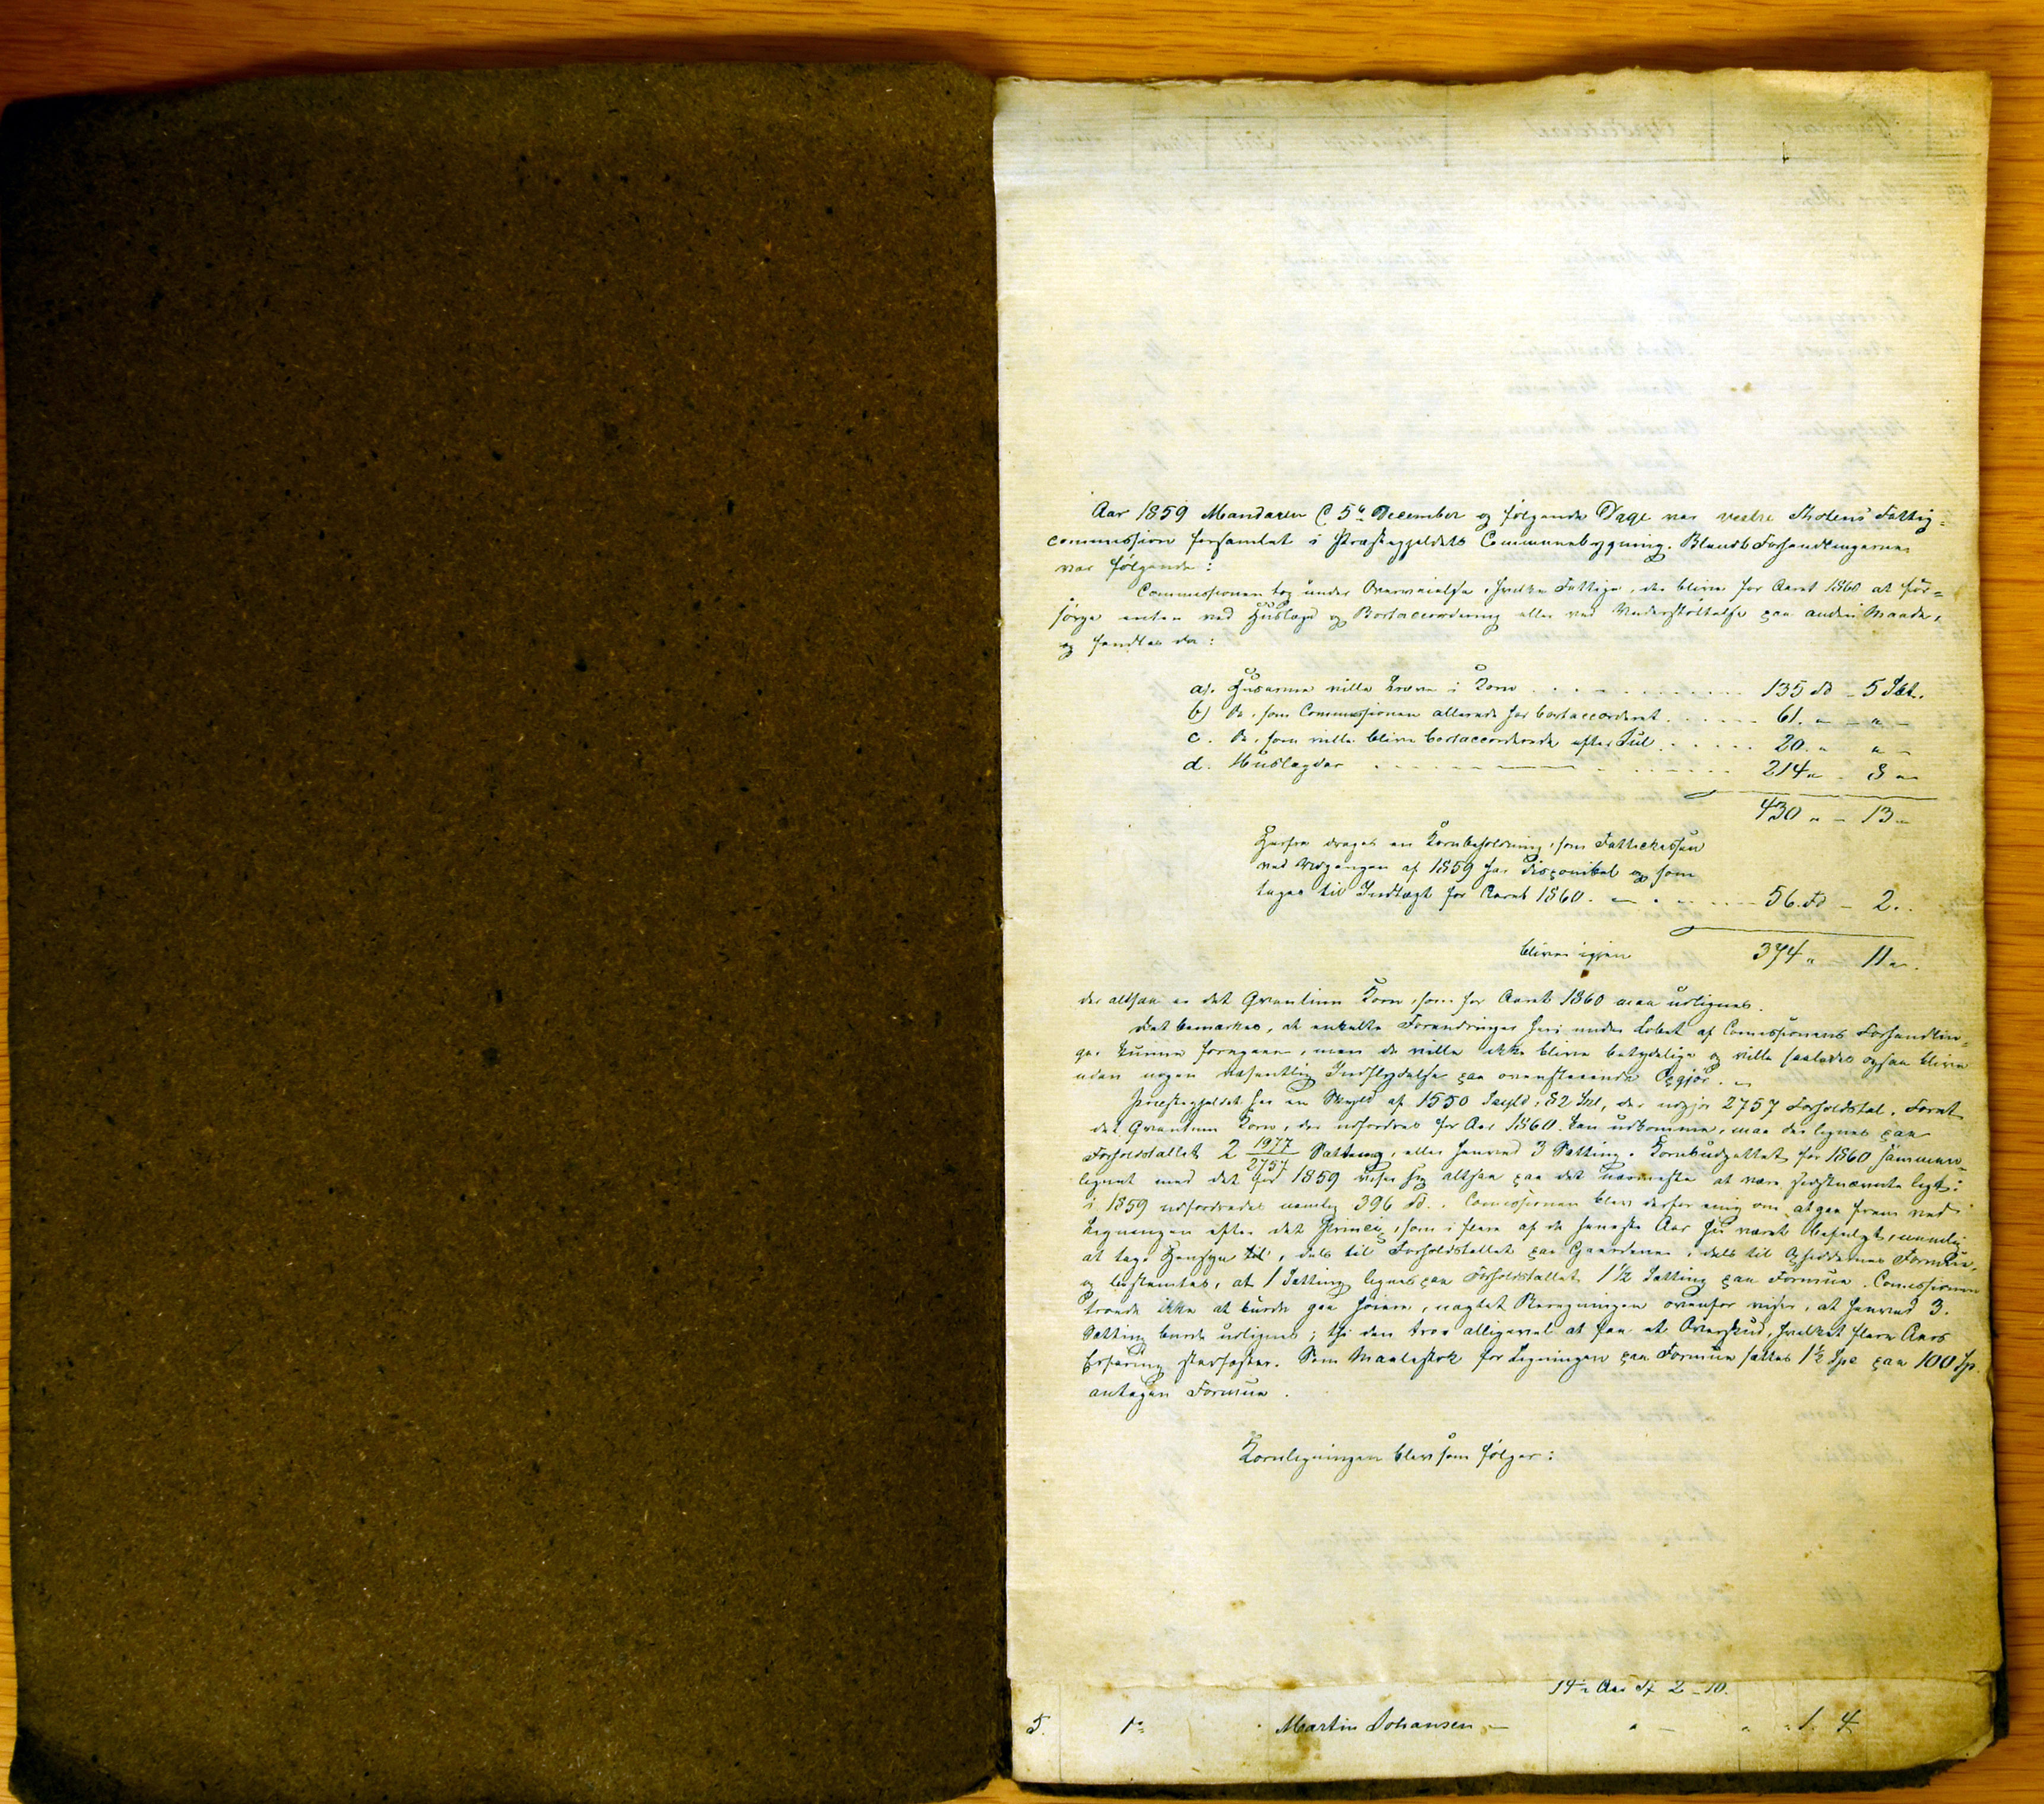 Aar 1859 Mandagen d. 5te December og følgende Dage var vestre Thotens Fattig=
commission forsamlet i Præstegjeldets Communebygning. Blandt Forhandlingerne
var følgende:
Commissionen tog under Overveielse, hvilke Fattige, der blive for Aaret 1860 at for=
sørge enten ved Huslægd og Bortaccordering eller ved Understøttelse paa anden Maade,
og fandtes da:
a). Husarme ville kræve i Korn 135 Td - 5 Sæt.
b) De, som Commissionen allerede har bortaccorderet 61. " - " -
c. De, som ville blive bortaccorderede efter Jul 20. " " -
d. Huslægder 214 " - 8 "
430 " - 13 "
Herfra drages en Kornbeholdning, som Fattickassen
ved Udgangen af 1859 har disponibel og som
tages til Indtægt for Aaret 1860. 56. Td - 2.
bliver igjen 374 " 11 ".
der altsaa er det Qvantum Korn, som for Aaret 1860 maa udlignes.
Det bemærkes, at enkelte Forandringer heri under Løbet af Comissionens Forhandlin=
ger kunne foregaae, men de ville ikke blive betydelige og ville saaledes ogsaa blive
uden nogen væsentlig Indflydelse paa ovenstaaende Opgjør.
Præstegjeldet har en Skyld af 1550 82 Skl, der udgjør 2757 Forholdstal. Forat
det Qvantum Korn, der udfordres for Aar 1860 kan udkomme, maa der lignes paa
Forholdstallet 2 1977/2757 Sætting, eller henved 3 Sætting. Kornbudgettet for 1860 sammen=
lignet med det for 1859 viser sig altsaa paa det nærmeste at være sidstnævnte ligt:
i 1859 udfordredes nemlig 396 Td. Comissionen blev derfor enig om at gaa frem ved
Ligningen efter det Princip, som i flere af de seneste Aar har været befulgt, nemlig
at tage Hensyn til, dels til Forholdstallet paa Gaardene, dels til Opsiddernes Formue,
og bestemtes, at 1 Sætting lignes paa Forholdstallet 1 1/2 Sætting paa Formue. Comissionen
troede ikke at burde gaa høiere, uagtet Beregningen ovenfor viser, at henved 3.
Sætting burde udlignes; thi den tror alligevel at faa et Overskud, hvilket flere Aars
Erfaring stadfæster. Som Maalestok for Ligningen paa Formue sættes 1 1/2 Spd paa 100 Sp.
antagen Formue.
Kornligningen blev som følger:
14 Aar Td 2 - 10.
5. Do Martin Johansen - " - " " 1. 4